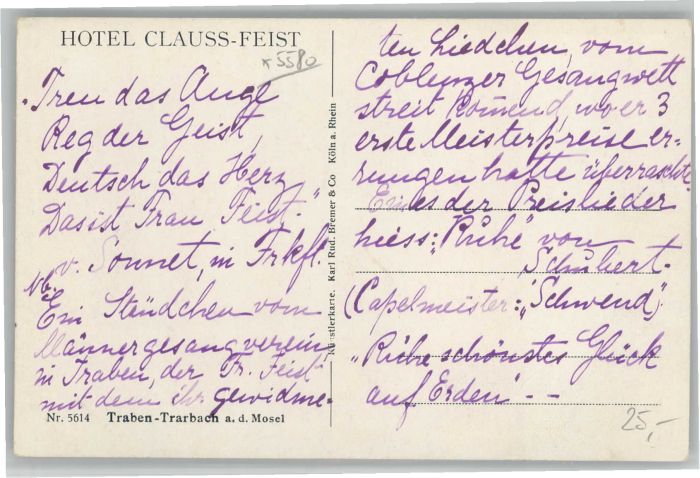 HOTEL CLAUSS-FEIST
*5580
"Treu das Auge
Reg der Geist,
Deutsch das Herz
Das ist Frau Feist."
v. Sonnet, in Frkft.
Nb.
Ein Ständchen vom
Männergesangverein,
in Traben, der Fr. Feist
mit dem ihr gewidme-
Nr. 5614 Traben-Trarbach a. d. Mosel
Künstlerkarte. Karl Rud. Bremer & Co Köln a. Rhein
ten Liedchen, vom
Coblenzer Gesangwett
streit komend, wo er 3
erste Meisterpreise er-
rungen hatte überraschte
Eines der Preislieder
hiess: "Ruhe" von
Schubert.
(Capelmeister: "Schwend")
"Ruhe schönstes Glück
auf Erden" - -
25,-